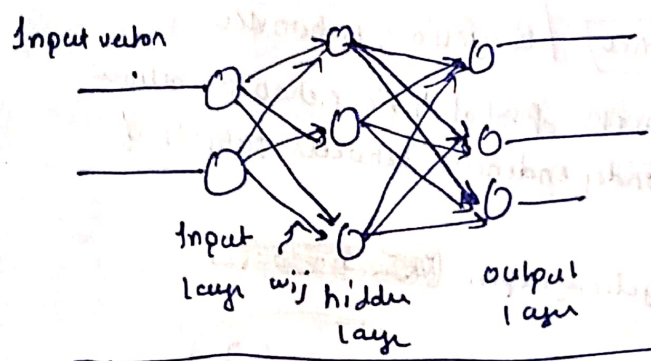 Input vector
Input
layer
wij
hidden
layer
output
layer